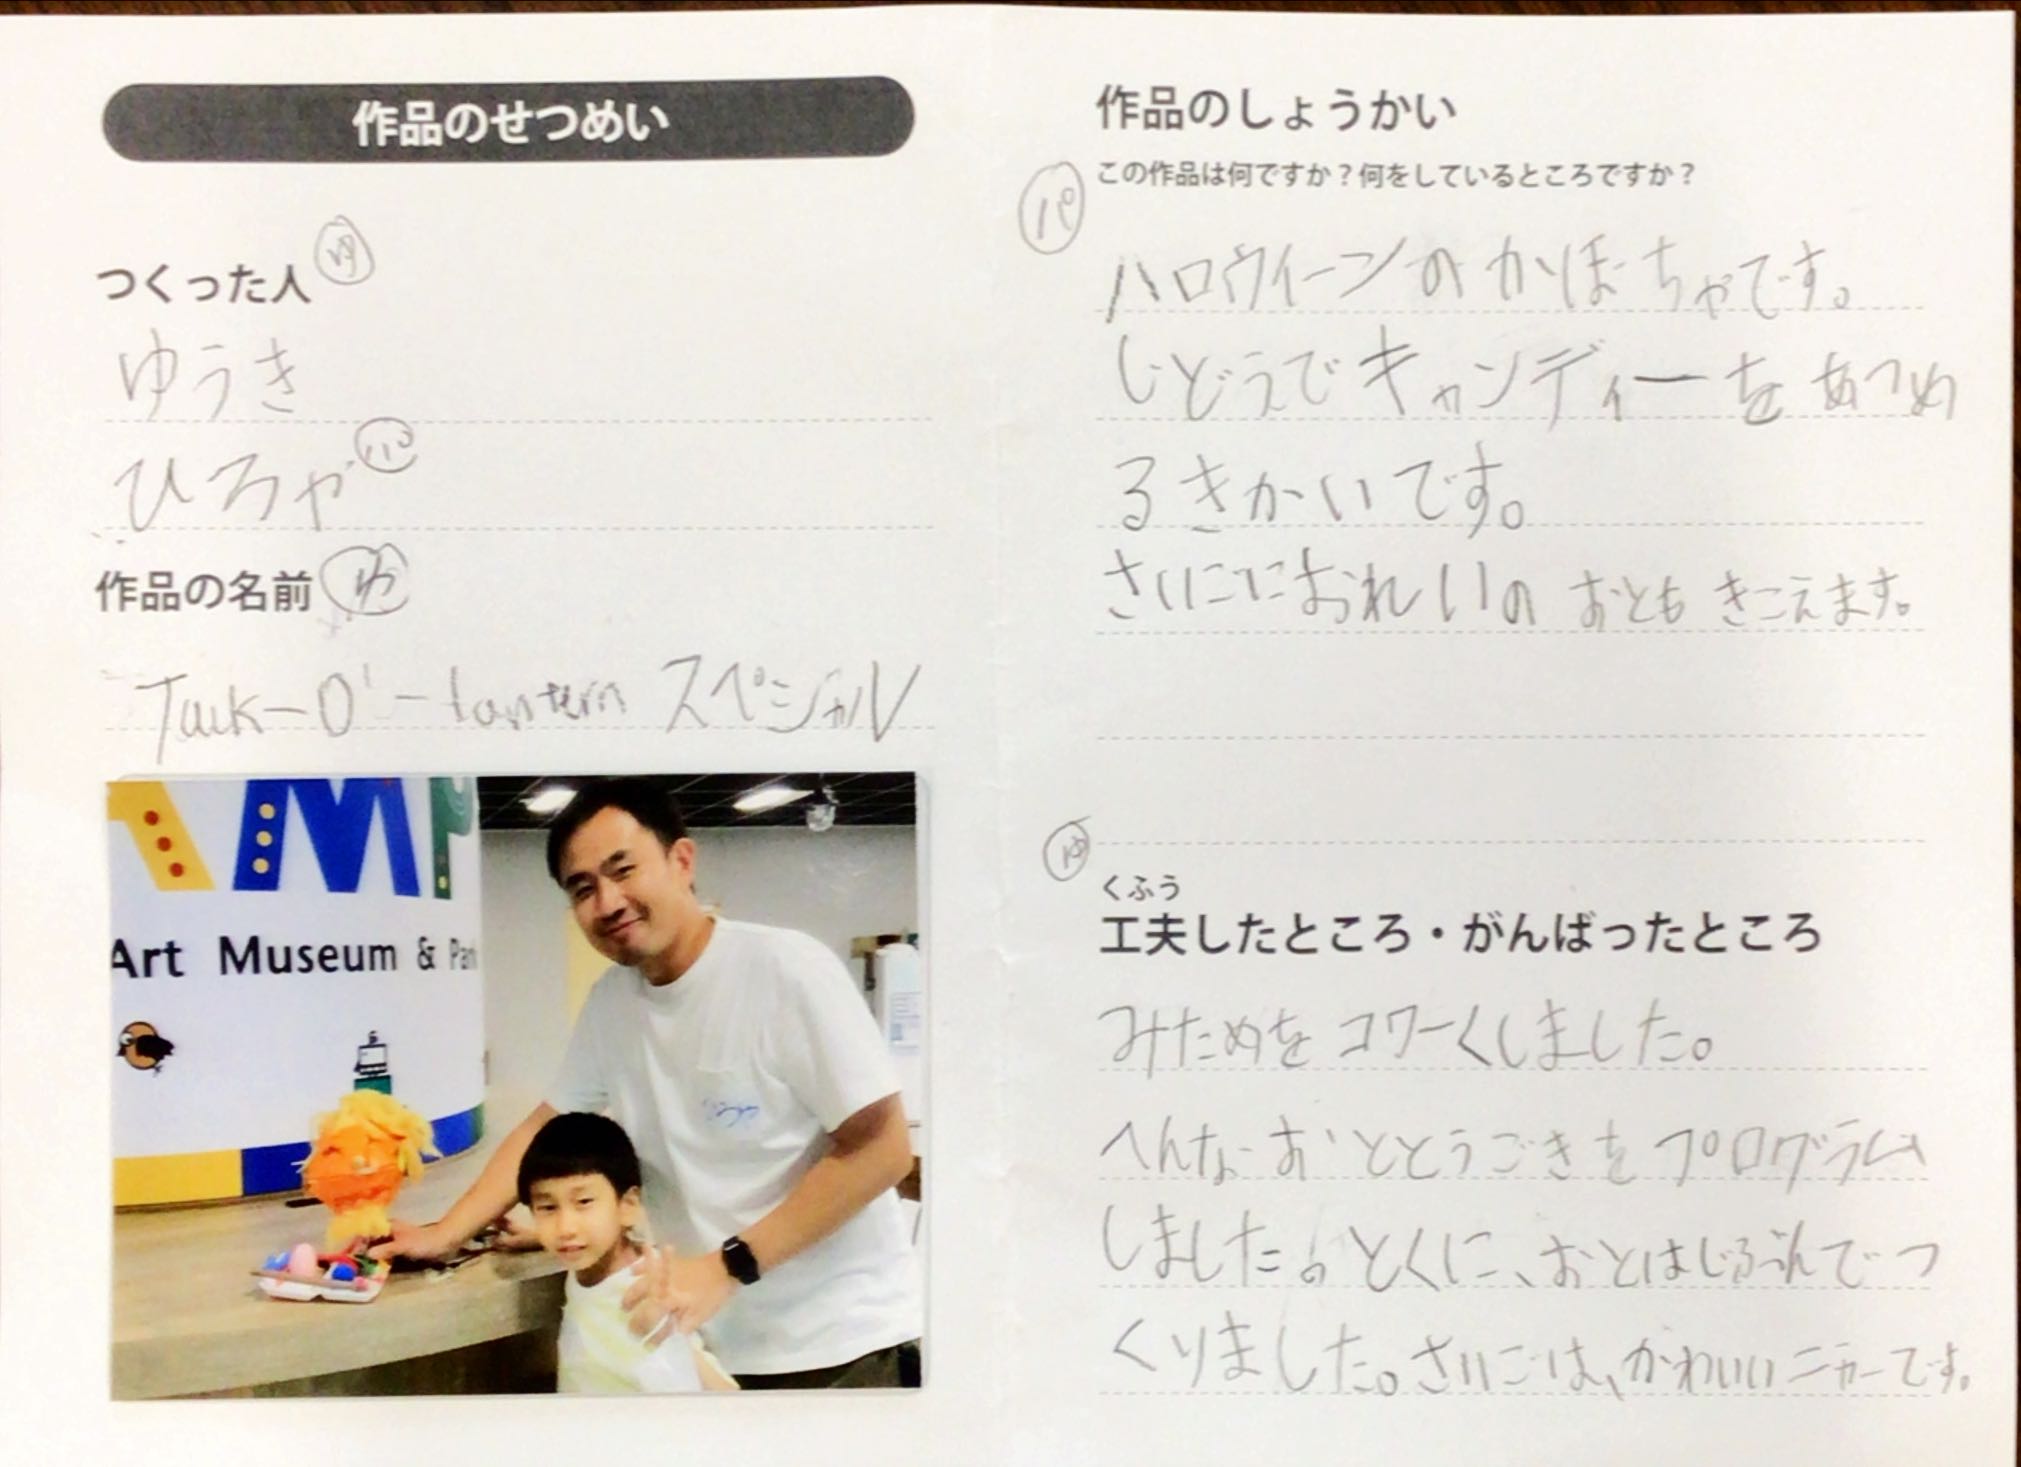 作品のせつめい
つくった人
ゆ
ゆうき
ひろや
パ
作品の名前
ゆ
スペシャル
AMP
Art Museum & Par
作品のしょうかい
この作品は何ですか？何をしているところですか？
パ
ハロウィーンのかぼちゃです。
じどうでキャンディーをあつめ
るきかいです。
さいごにおれいのおともきこえます。
ゆ
くふう
工夫したところ・がんばったところ
みためをコワーくしました。
へんなおととうごきをプログラム
しました。とくに、おとはじぶんでつ
くりました。さいごは、かわいいニカーです。